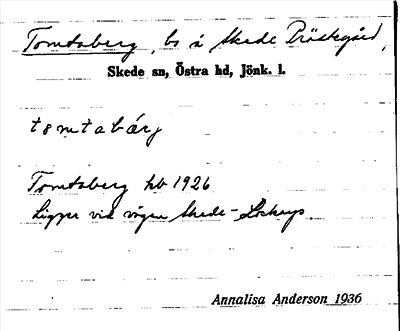 Tomtaberg, bs å Skede Prästegård,
Skede sn, Östra hd, Jönk. l.
tomtabärj
Tomtaberg hb 1926
Ligger vid vägen Skede-
Annalisa Anderson 1936